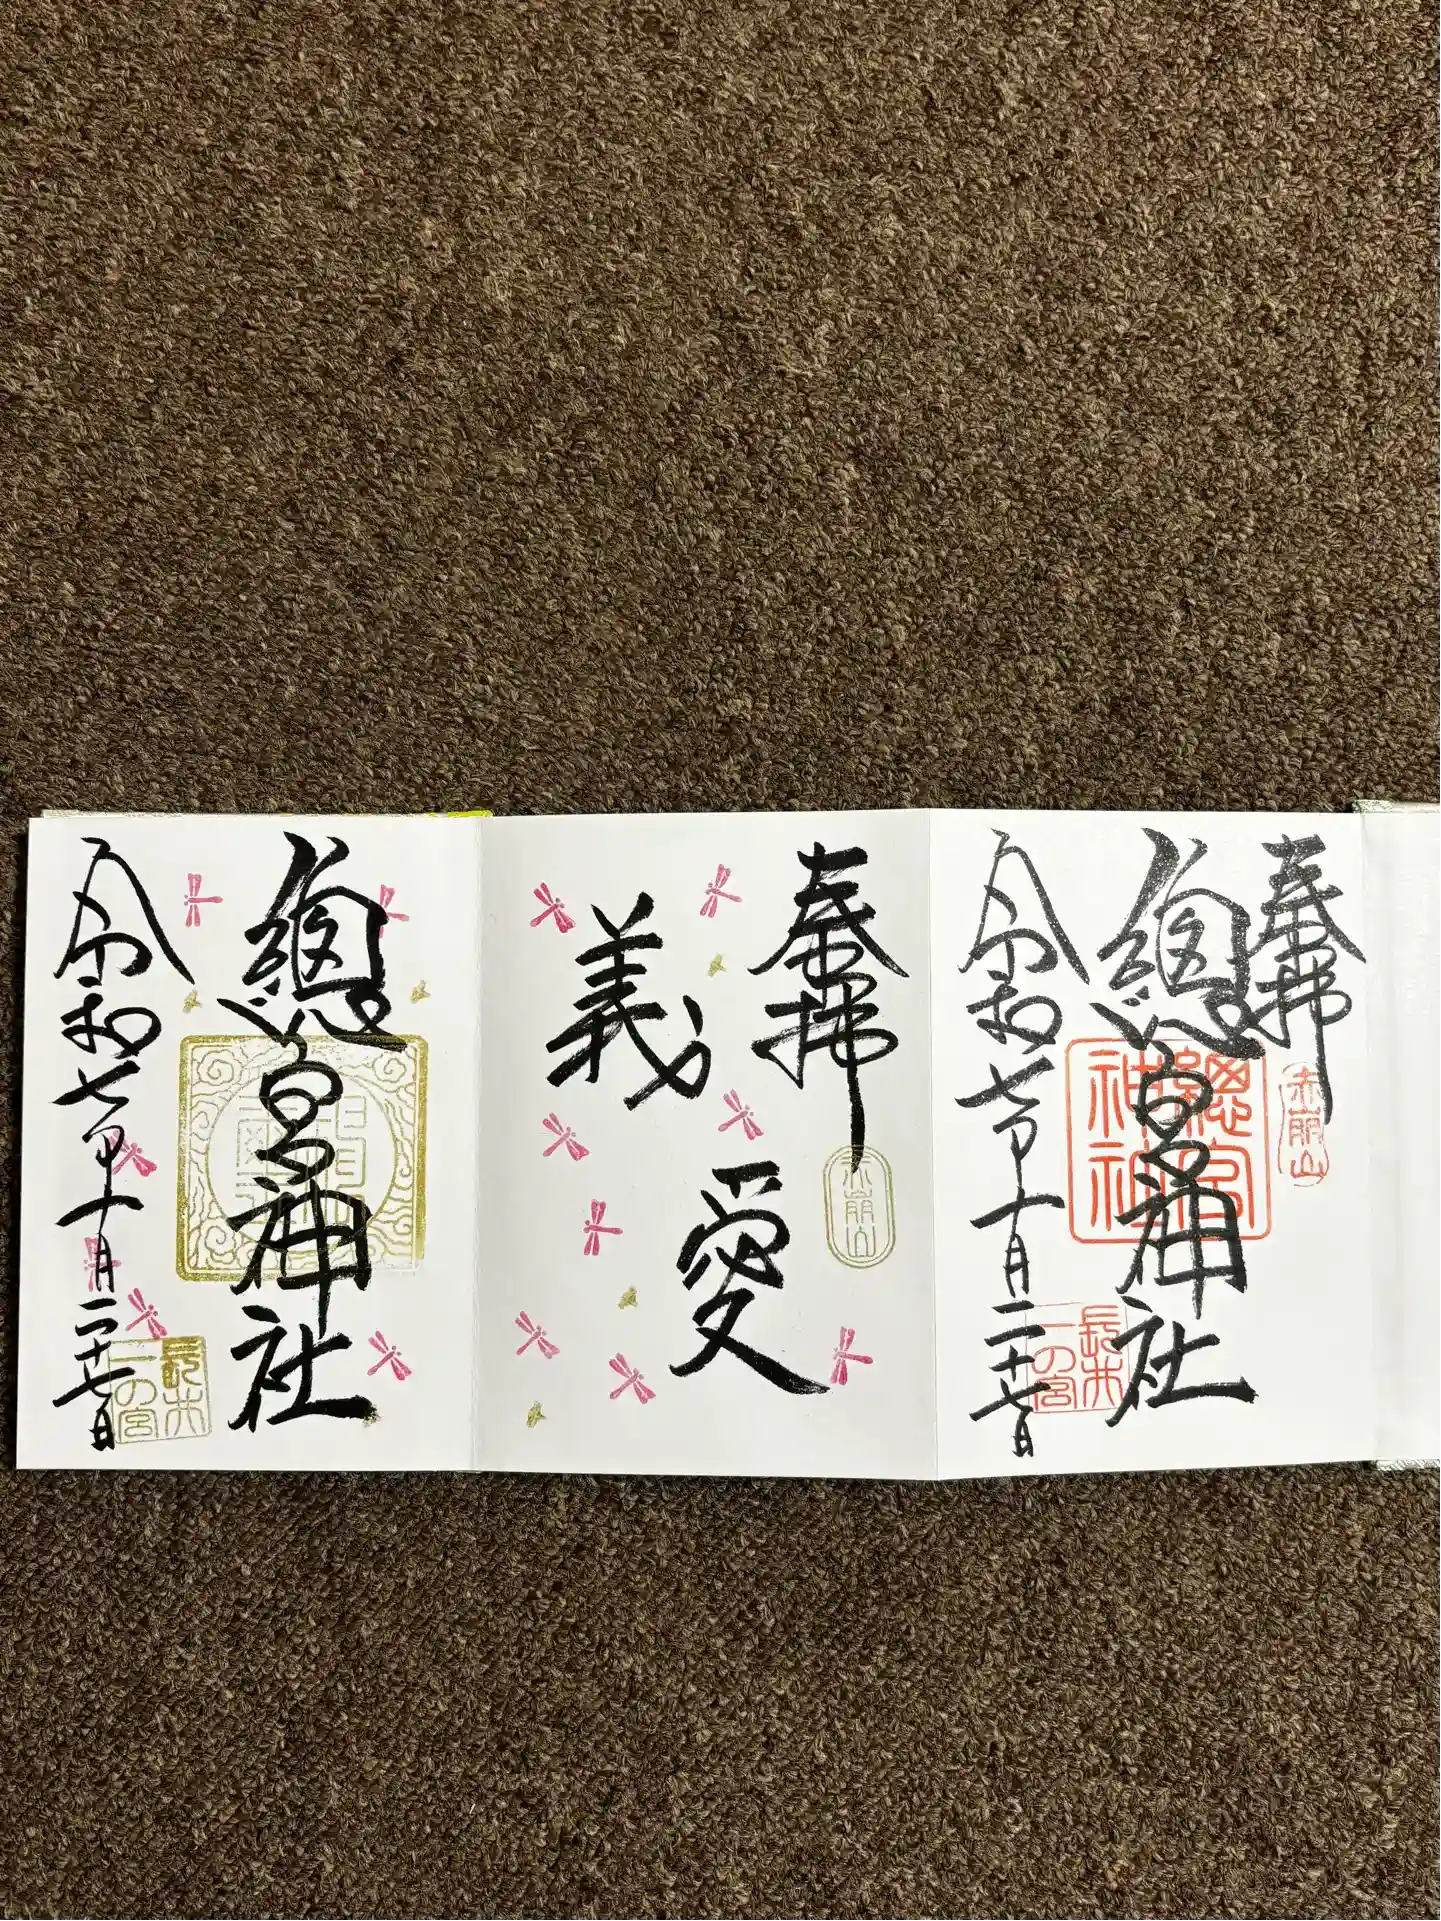 奉拝
赤崩山
總宮神社
總宮神社
長井
一の宮
令和七年十月二十七日
奉拝
赤崩山
愛
義
總宮神社
長井
一の宮
令和七年十月二十七日